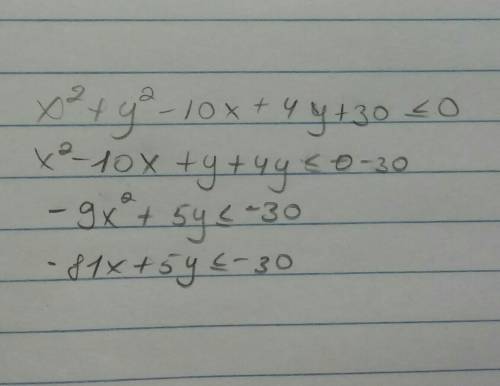 x² + y² - 10x + 4y + 30 ≤ 0
x² - 10x + y + 4y ≤ 0 - 30
- 9x² + 5y ≤ -30
- 81x + 5y ≤ -30